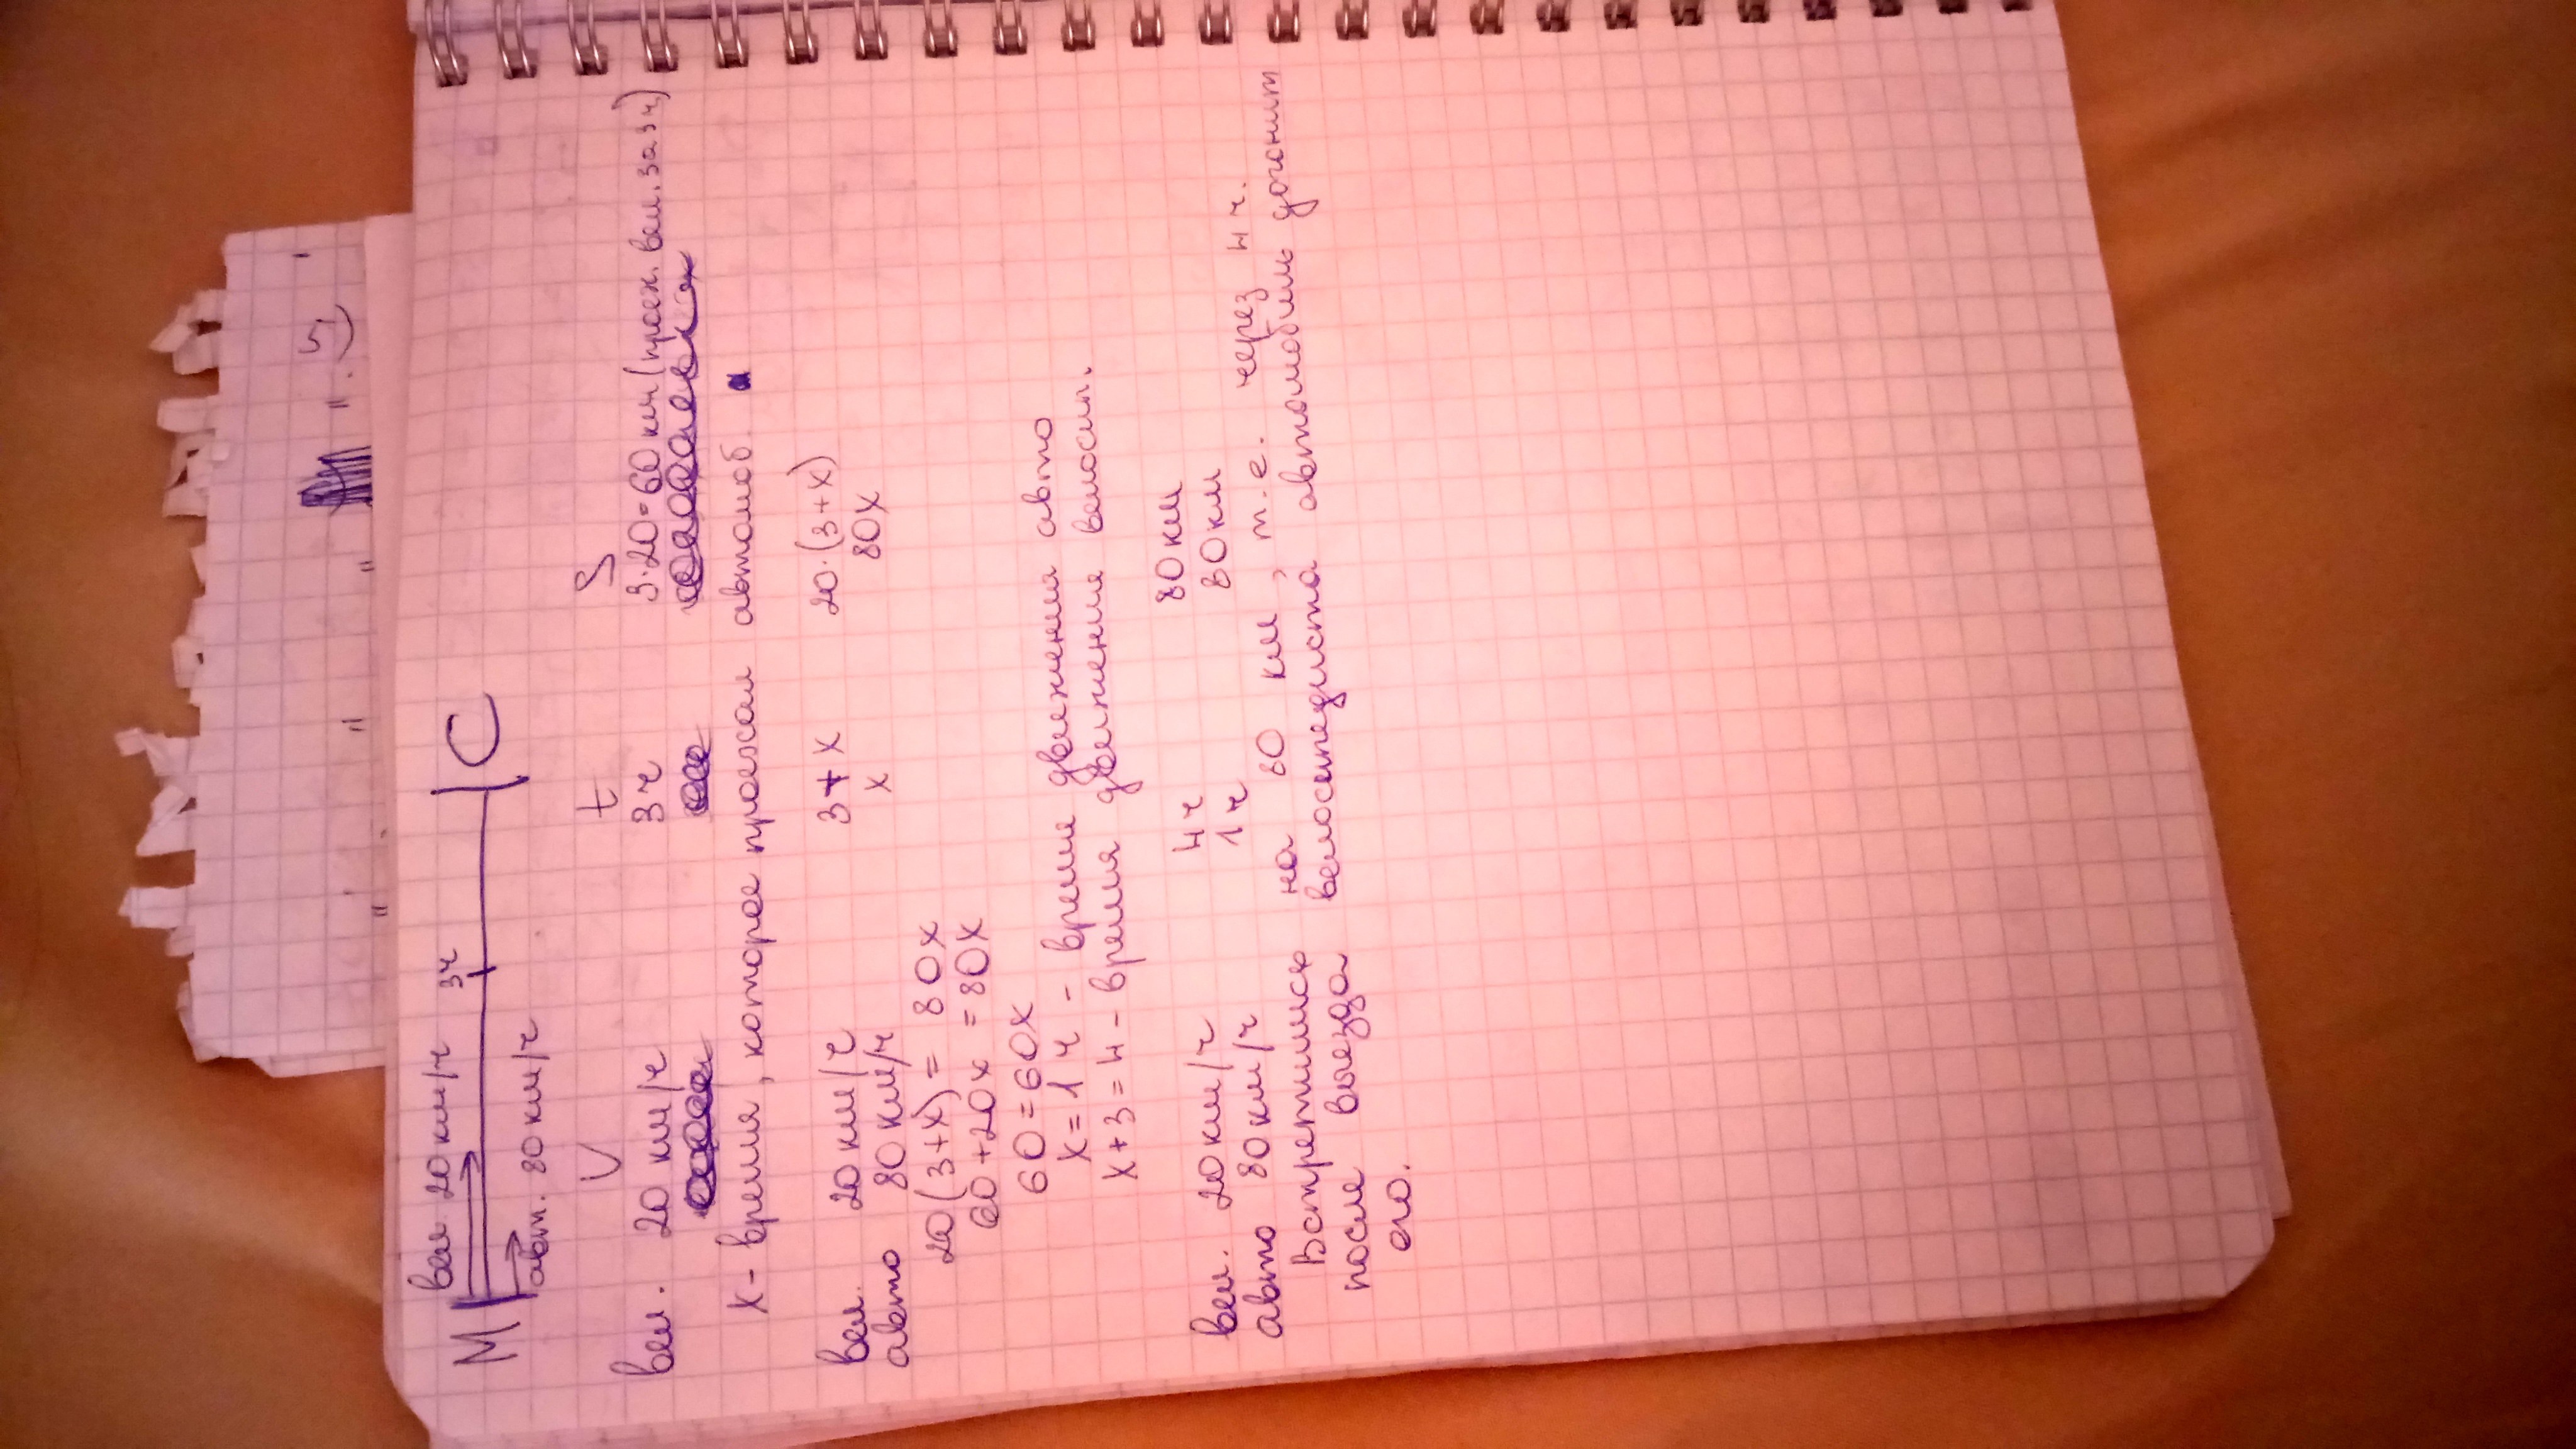 вел. 20 км/ч 3ч
М С
авт. 80 км/ч
V t S
вел. 20 км/ч 3ч 3·20=60 км (проех. вел. за 3ч)
x - время, которое проехал автомоб.
вел. 20 км/ч 3+x 20·(3+x)
авто 80 км/ч x 80x
20(3+x) = 80x
60+20x = 80x
60=60x
x=1 ч - время движения авто
x+3=4 - время движения велосип.
вел. 20 км/ч 4ч 80 км
авто 80 км/ч 1ч 80 км
Встретились на 80 км, т.е. через 4 ч.
после выезда велосипедиста автомобиль догонит
его.
5)